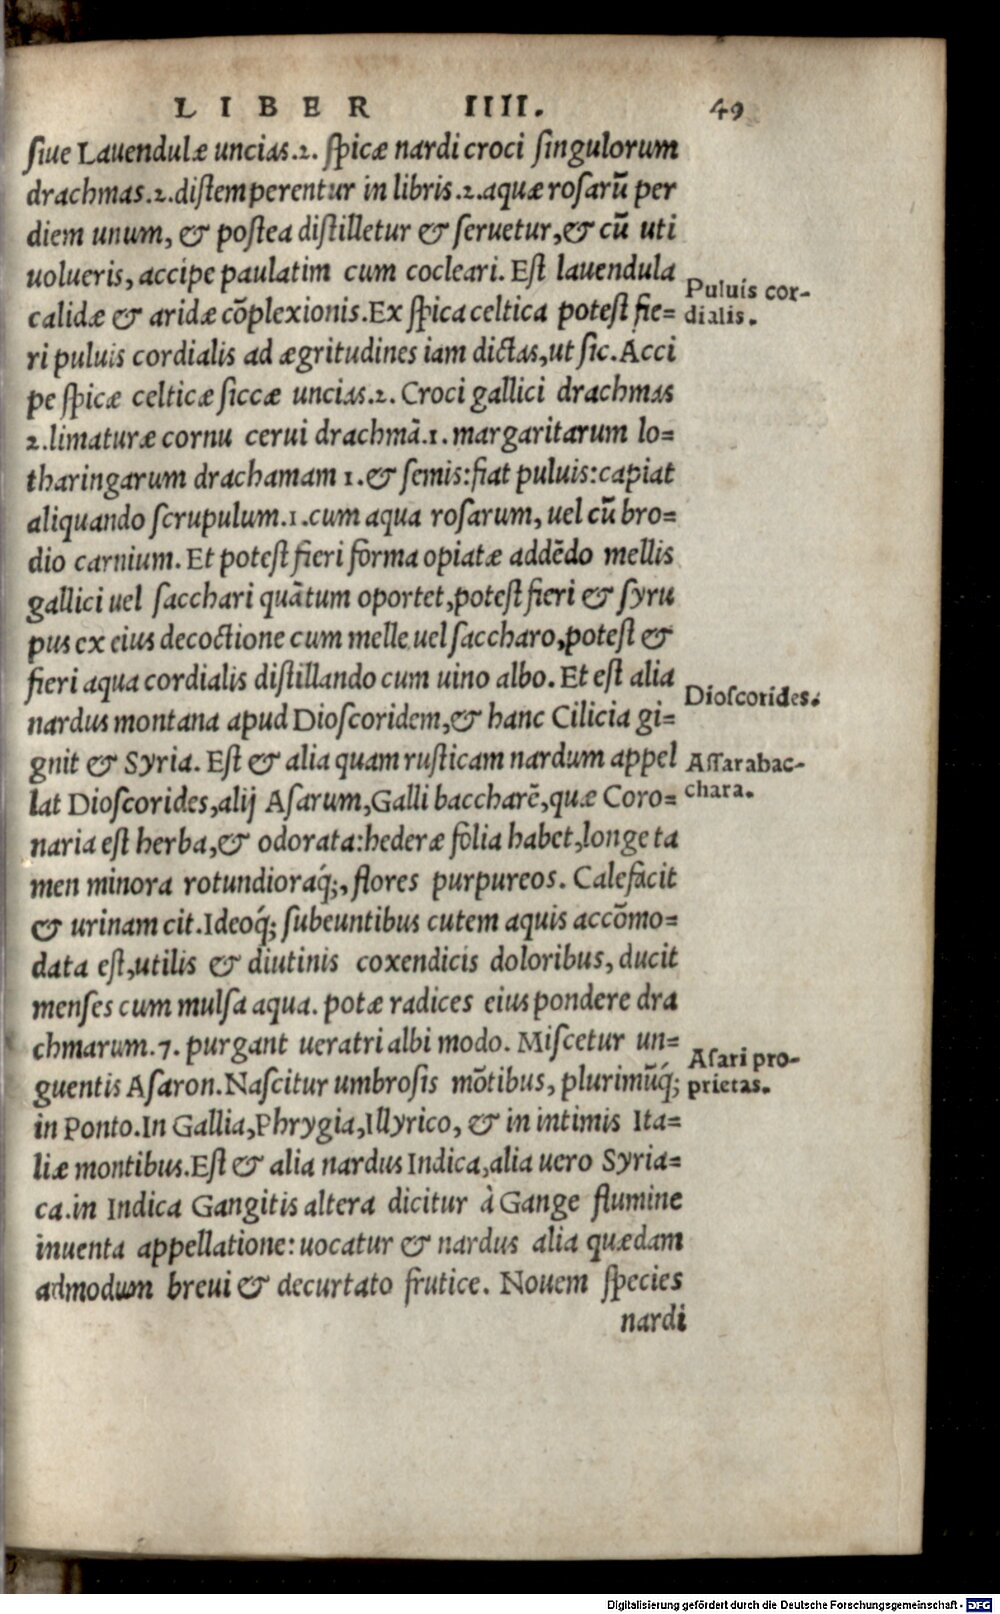 LIBER IIII. 49
ſiue Lauendulæ uncias.2. ſpicæ nardi croci ſingulorum
drachmas.2.diſtemperentur in libris.2.aquæ roſarũ per
diem unum, & poſtea diſtilletur & ſeruetur,& cũ uti
uolueris, accipe paulatim cum cocleari. Eſt lauendula
calidæ & aridæ cõplexionis.Ex ſpica celtica poteſt fie=
Puluis cor-
dialis.
ri puluis cordialis ad ægritudines iam dictas,ut ſic.Acci
pe ſpicæ celticæ ſiccæ uncias.2. Croci gallici drachmas
2.limaturæ cornu cerui drachmã.1. margaritarum lo=
tharingarum drachamam 1.& ſemis:fiat puluis:capiat
aliquando ſcrupulum.1.cum aqua roſarum, uel cũ bro=
dio carnium. Et poteſt fieri forma opiatæ addẽdo mellis
gallici uel ſacchari quãtum oportet,poteſt fieri & ſyru
pus ex eius decoctione cum melle uel ſaccharo,poteſt &
fieri aqua cordialis diſtillando cum uino albo. Et eſt alia
nardus montana apud Dioſcoridem,& hanc Cilicia gi=
Dioſcorides.
gnit & Syria. Eſt & alia quam ruſticam nardum appel
lat Dioſcorides,alij Aſarum,Galli baccharẽ,quæ Coro=
Aſſarabac-
chara.
naria eſt herba,& odorata:hederæ folia habet,longe ta
men minora rotundioraq́;, flores purpureos. Calefacit
& urinam cit.Ideoq́; ſubeuntibus cutem aquis accõmo=
data eſt,utilis & diutinis coxendicis doloribus, ducit
menſes cum mulſa aqua. potæ radices eius pondere dra
chmarum.7. purgant ueratri albi modo. Miſcetur un=
guentis Aſaron.Naſcitur umbroſis mõtibus, plurimũq́;
Aſari pro-
prietas.
in Ponto.In Gallia,Phrygia,Illyrico, & in intimis Ita=
liæ montibus.Eſt & alia nardus Indica,alia uero Syria=
ca.in Indica Gangitis altera dicitur à Gange flumine
inuenta appellatione: uocatur & nardus alia quædam
admodum breui & decurtato frutice. Nouem ſpecies
nardi
Digitalisierung gefördert durch die Deutsche Forschungsgemeinschaft - DFG